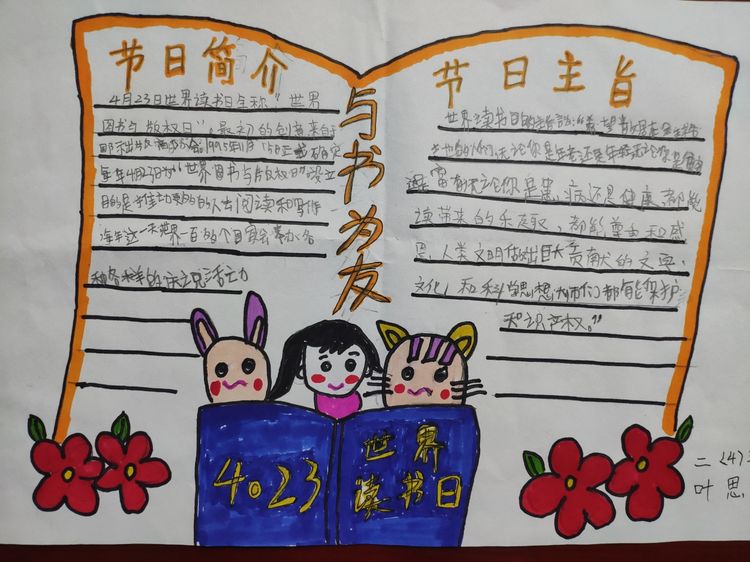 节日简介
4月23日世界读书日全称"世界
图书与版权日",最初的创意来自于
出版 1995年11月 正式确定
每年4月23日为"世界图书与版权日"设立
目的是推动更多的人去阅读和写作
每年这一天世界一百多个国家会举办各
种各样的庆祝活动
与书为友
节日主旨
世界读书日的主旨:"希望散居在全球各
地的人们,无论你是年老还是年轻,无论你是贫穷
还是富有,无论你是患病还是健康,都能
读带来的乐趣,都能尊重和感
恩人类文明做出巨大贡献的文学、
文化和科学思想大师们,都能保护
知识产权。"
4.23
世界
读书日
二(4)
叶思